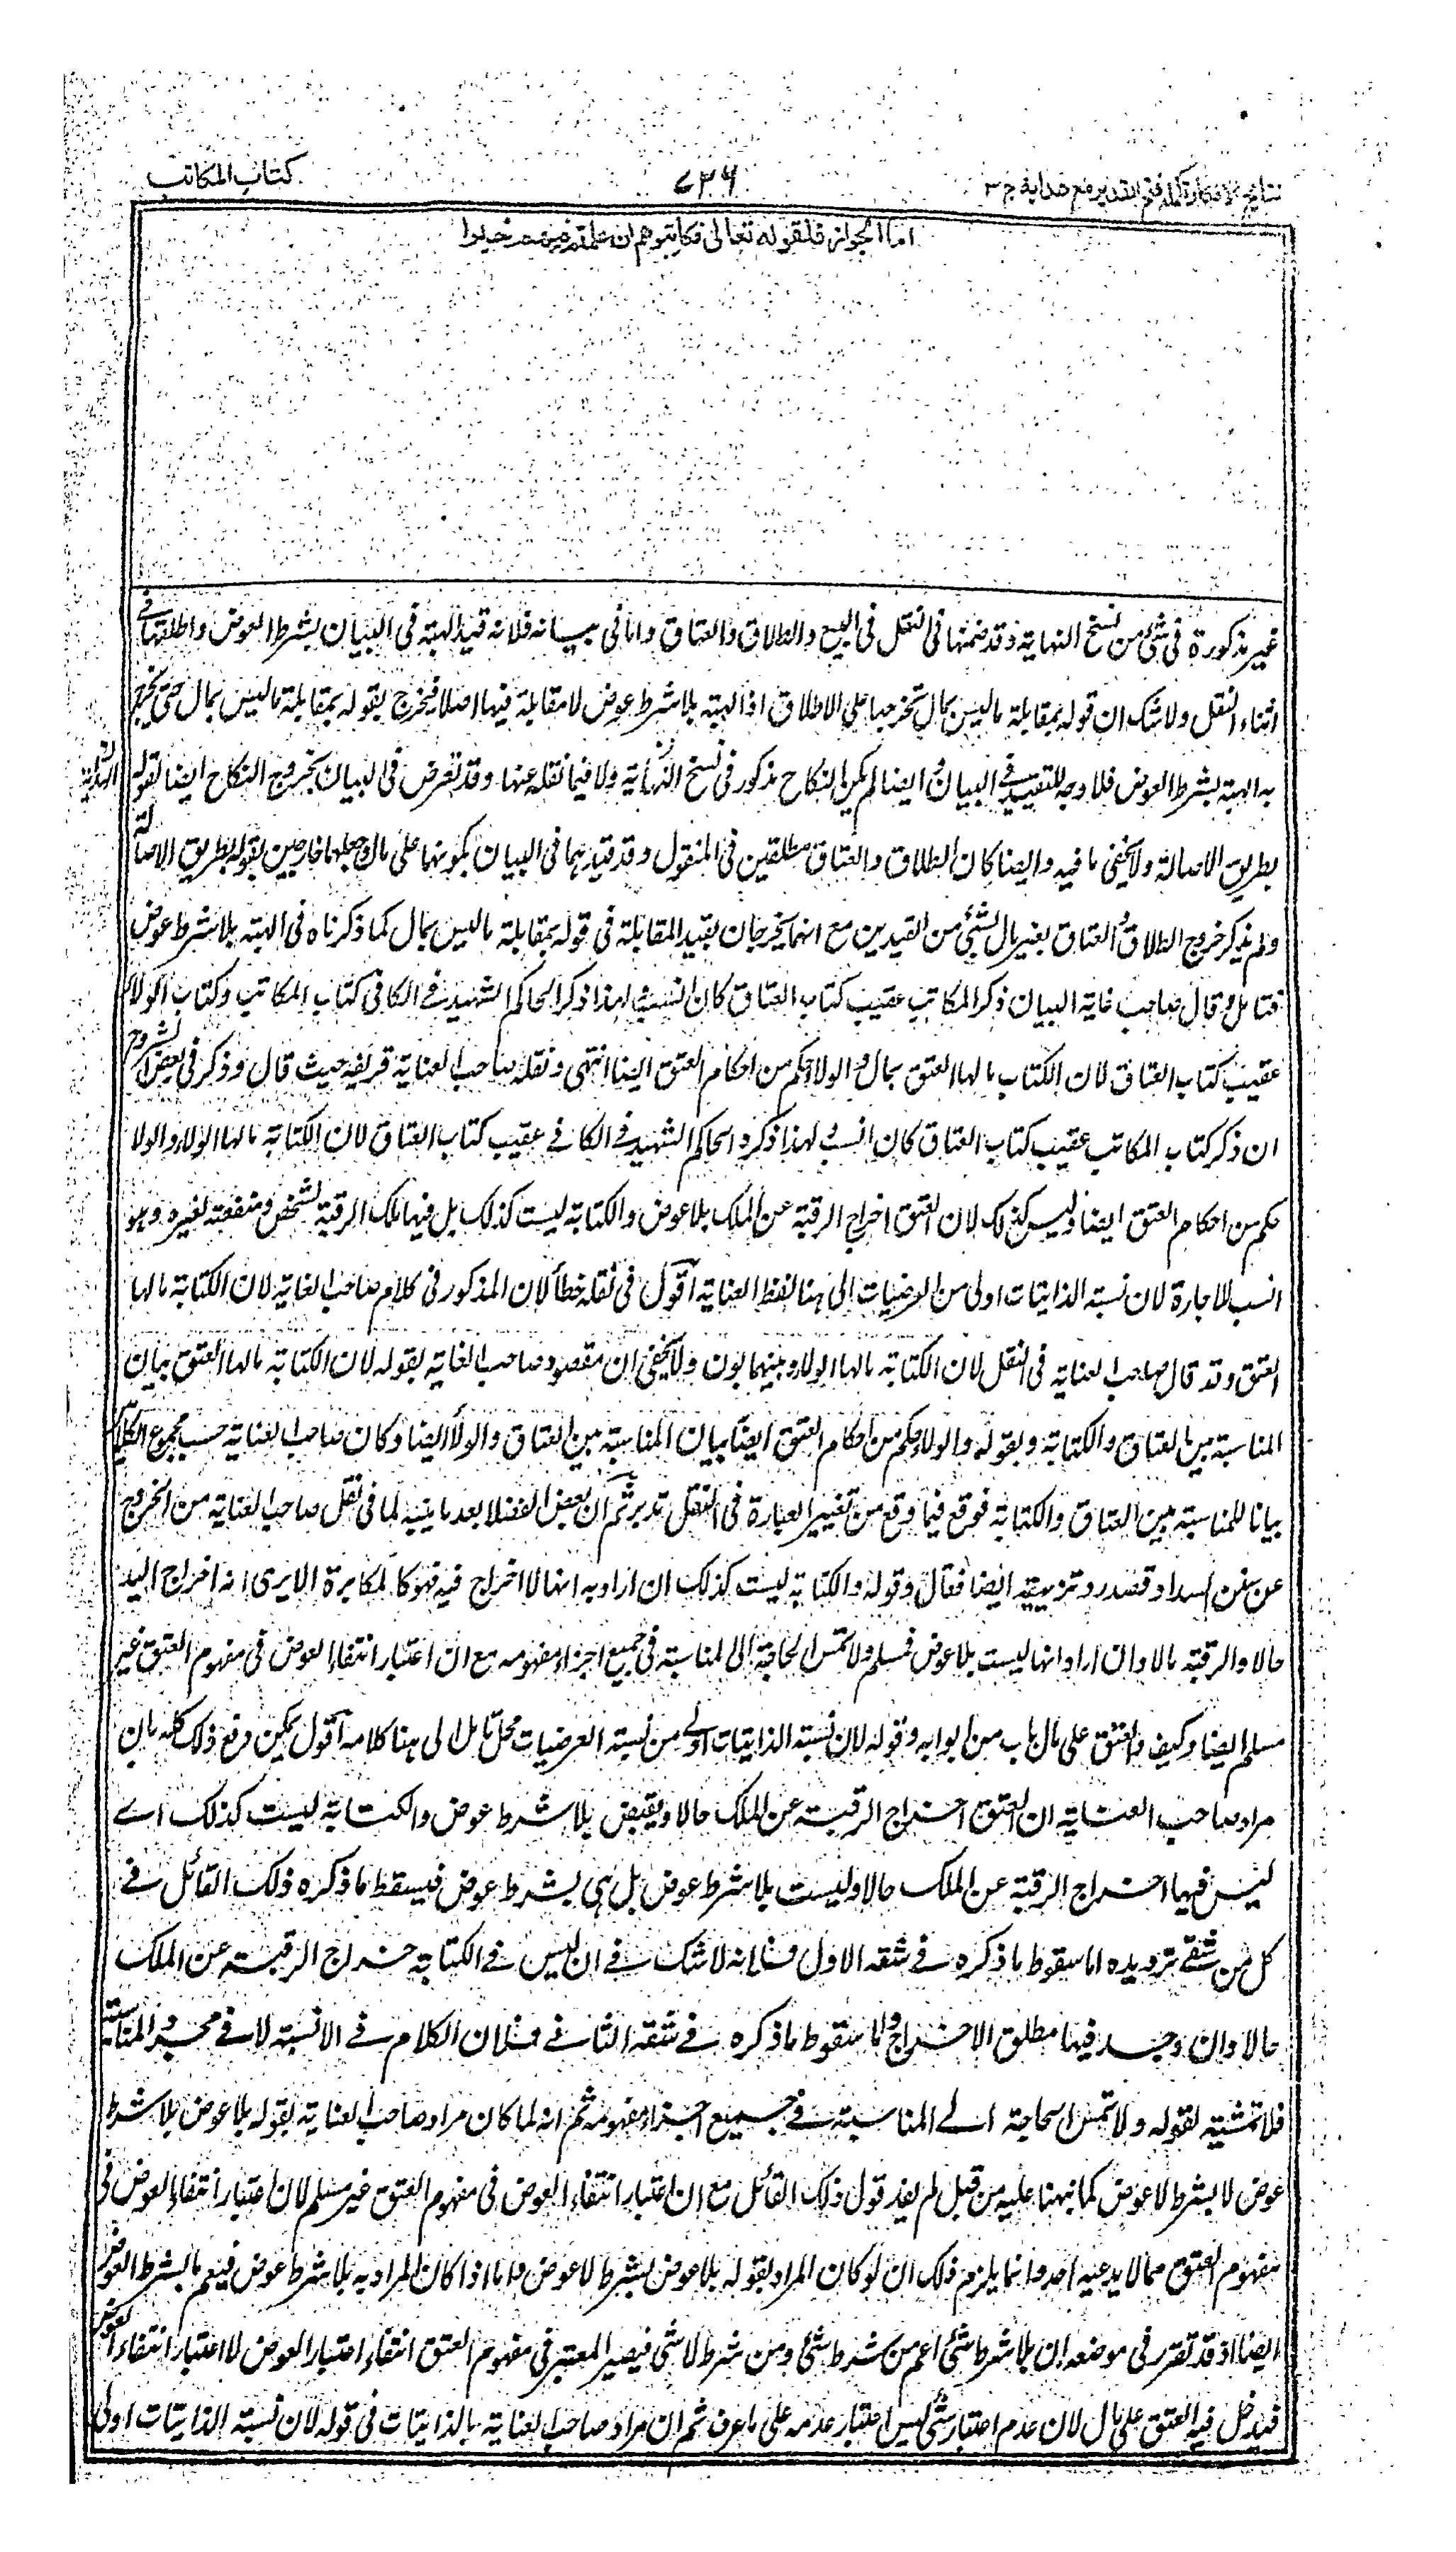 نتائج الافكار تكملة فتح القدير مع هداية ج ٣
٧٣٦
كتاب المكاتب
اما الجواز فلقوله تعالى فكاتبوهم ان علمتم فيهم خيرا
غير مذكورة فى شئ من نسخ النهاية وقد ضمنها فى النقل فى البيع والطلاق والعتاق واما فى بيانه فلانه قيد الهبة فى البيان بشرط العوض واطلقها فى
اثناء النقل ولا شك ان قوله بمقابلة ما ليس بمال تخرجها على الاطلاق اذ الهبة بلا شرط عوض لا مقابلة فيها اصلا فيخرج بقوله بمقابلة ما ليس بمال حتى يخرج
به الهبة بشرط العوض فلا وجه للتقييد فى البيان وايضا لم يكن النكاح مذكور فى نسخ النهاية ولا فيما نقله عنها وقد تعرض فى البيان بخروج النكاح ايضا بقوله
بطريق الاصالة ولا يخفى ما فيه وايضا كان الطلاق والعتاق مطلقين فى المنقول وقد قيدهما فى البيان بكونهما على مال وجعلهما خارجين بقوله بطريق الاصالة
ولم يذكر خروج الطلاق والعتاق بغير مال بشئ من القيدين مع انهما يخرجان بقيد المقابلة فى قوله بمقابلة ما ليس بمال كما ذكرناه فى الهبة بلا شرط عوض
فتامل وقال صاحب غاية البيان ذكر المكاتب عقيب كتاب العتاق كان انسب ولهذا ذكر الحاكم الشهيد فى الكافى كتاب المكاتب وكتاب الولاء
عقيب كتاب العتاق لان الكتاب مالها العتق بمال والولاء حكم من احكام العتق ايضا انتهى ونقله صاحب العناية قريفه حيث قال وذكر فى بعض الشروح
ان ذكر كتاب المكاتب عقيب كتاب العتاق كان انسب ولهذا ذكره الحاكم الشهيد فى الكافى عقيب كتاب العتاق لان الكتابة مالها الولاء والولاء
حكم من احكام العتق ايضا وليس كذلك لان العتق اخراج الرقبة عن الملك بلا عوض والكتابة ليست كذلك بل فيها ملك الرقبة لشخص ومنفعته لغيره وهو
انسب للاجارة لان نسبة الذاتيات اولى من العرضيات الى هنا لفظ العناية اقول فى نقله خطأ لان المذكور فى كلام صاحب الغاية لان الكتابة مالها
العتق وقد قال صاحب العناية فى النقل لان الكتابة مالها الولاء وبينهما بون ولا يخفى ان مقصود صاحب الغاية بقوله لان الكتابة مالها العتق بيان
المناسبة بين العتاق والكتابة وبقوله والولاء حكم من احكام العتق ايضا بيان المناسبة بين العتاق والولاء ايضا وكان صاحب العناية حسب مجموع الكلام
بيانا للمناسبة بين العتاق والكتابة فوقع فيما وقع من تغيير العبارة فى النقل تدبر ثم ان بعض الفضلاء بعد ما ينبه لما فى نقل صاحب العناية من الخروج
عن سنن السداد قصد رد تزييفه ايضا فقال وقوله والكتابة ليست كذلك ان اراد به انها لا اخراج فيه فهو كالمكابرة الا يرى انه اخراج اليد
حالا والرقبة مالا وان اراد انها ليست بلا عوض فمسلم ولا تمس الحاجة الى المناسبة فى جميع اجزاء مفهومه مع ان اعتبار انتفاء العوض فى مفهوم العتق غير
مسلم ايضا وكيف والعتق على مال باب من ابوابه وقوله لان نسبة الذاتيات اولى من نسبة العرضيات محل تامل الى هنا كلامه اقول يمكن دفع ذلك كله بان
مراد صاحب العناية ان العتق اخراج الرقبة عن الملك حالا ويقبض بلا شرط عوض والكتابة ليست كذلك اى
ليس فيها اخراج الرقبة عن الملك حالا وليست بلا شرط عوض بل هى بشرط عوض فيسقط ما ذكره ذلك القائل فى
كل من شقى ترديده اما سقوط ما ذكره فى شقه الاول فلانه لا شك فى ان ليس فى الكتابة اخراج الرقبة عن الملك
حالا وان وجد فيها مطلق الاخراج واما سقوط ما ذكره فى شقه الثانى فلان الكلام فى الانسبة لا فى مجرد المناسبة
فلا تمشية لقوله ولا تمس الحاجة الى المناسبة فى جميع اجزاء مفهومه ثم انه لما كان مراد صاحب العناية بقوله بلا عوض بلا شرط
عوض لا بشرط لا عوض كما نبهنا عليه من قبل لم يفد قول ذلك القائل مع ان اعتبار انتفاء العوض فى مفهوم العتق غير مسلم لان اعتبار انتفاء العوض فى
مفهوم العتق مما لا يدعيه احد وانما يلزم ذلك ان لو كان المراد بقوله بلا عوض بشرط لا عوض واما اذا كان المراد به بلا شرط عوض فيعم ما بشرط العوض
ايضا اذ قد تقرر فى موضعه ان بلا شرط شئ اعم من شرط شئ ومن شرط لا شئ فيصير المعتبر فى مفهوم العتق انتفاء اعتبار العوض لا اعتبار انتفاء العوض
فيدخل فيه العتق على مال لان عدم اعتبار شئ ليس اعتبار عدمه على ما عرف ثم ان مراد صاحب العناية بالذاتيات فى قوله لان نسبة الذاتيات اولى